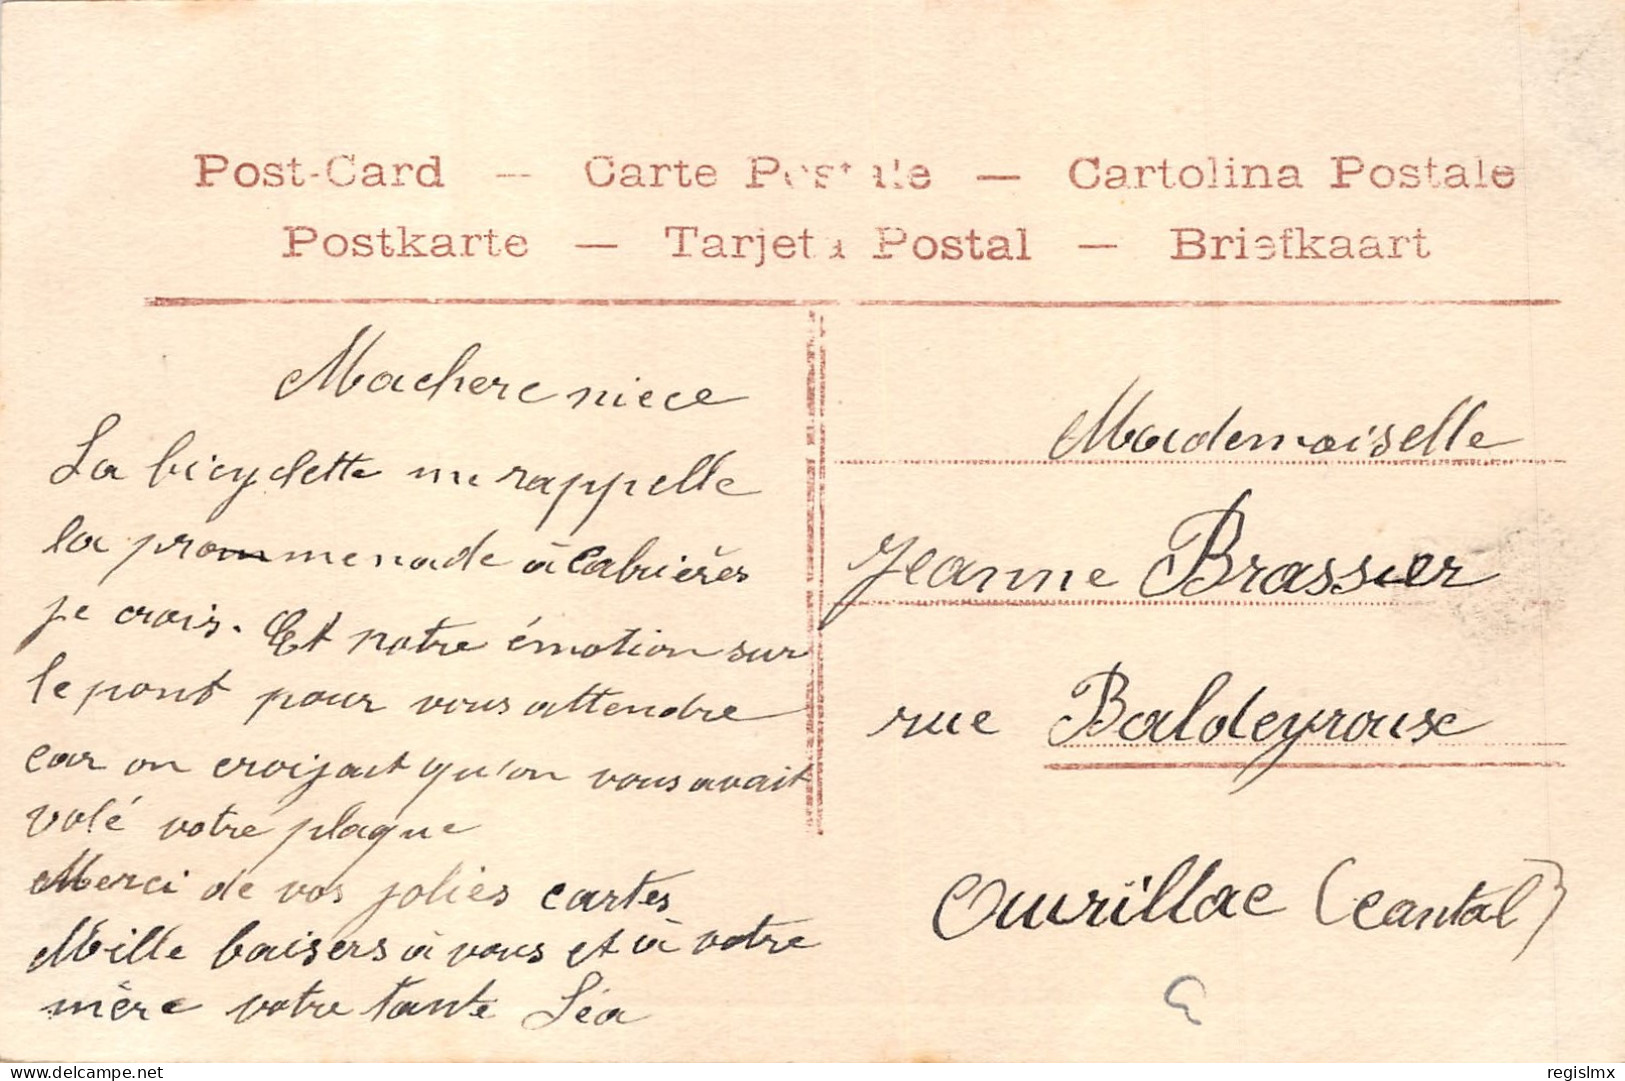 Post-Card — Carte Postale — Cartolina Postale
Postkarte — Tarjeta Postal — Briefkaart
Ma chere niece
La bicyclette me rappelle
la promenade à Cabrières
je crois. Et notre émotion sur
le pont pour vous attendre
car on croijait qu'on vous avait
volé votre plaque
Merci de vos jolies cartes
Mille baisers à vous et à votre
mère votre tante Léa
Mademoiselle
Jeanne Brassier
rue Baldeyroux
Aurillac (Cantal)
delcampe.net
regislmx